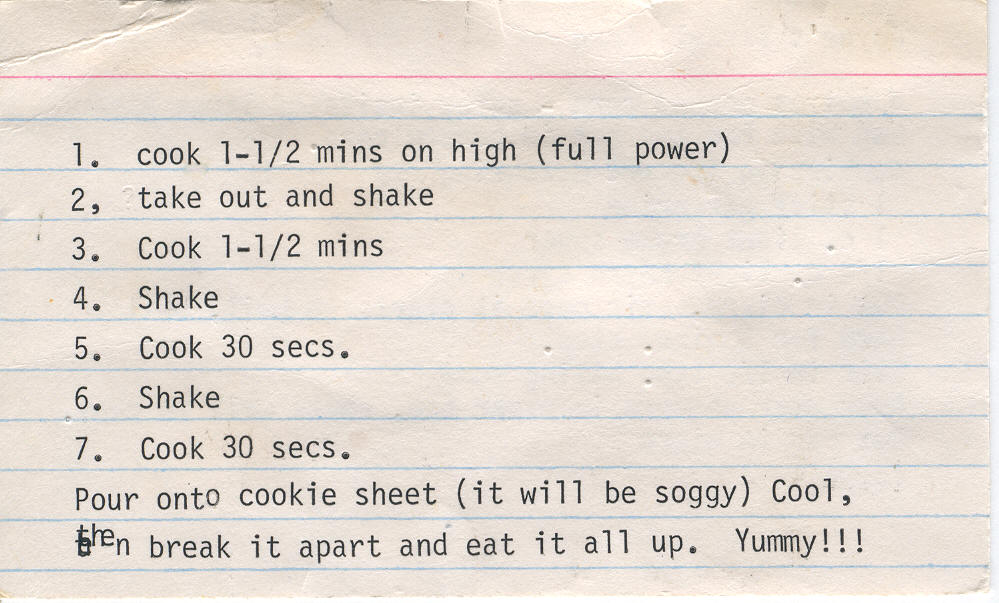 1. cook 1-1/2 mins on high (full power)
2, take out and shake
3. Cook 1-1/2 mins
4. Shake
5. Cook 30 secs.
6. Shake
7. Cook 30 secs.
Pour onto cookie sheet (it will be soggy) Cool,
then break it apart and eat it all up. Yummy!!!